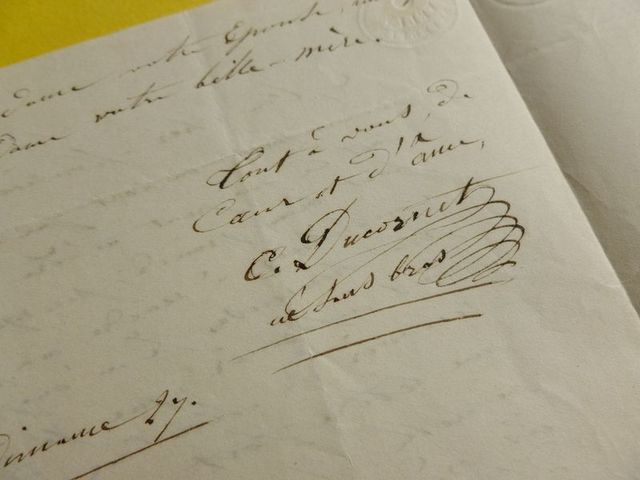 votre Epouse,
votre belle-mère.
Tout à vous, de
Cœur et d'âme,
C. Ducornet
né sans bras
Dimanche 27.